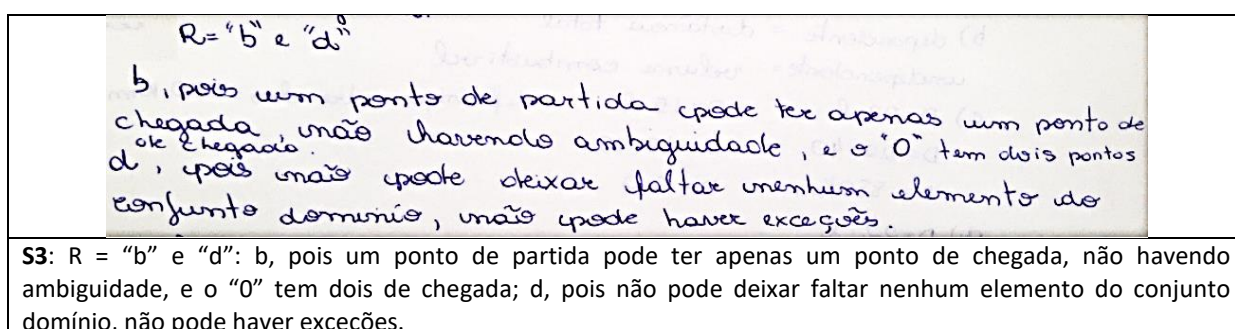 R= "b" e "d"
b, pois um ponto de partida pode ter apenas um ponto de
chegada, não havendo ambiguidade, e o "0" tem dois pontos
de chegada.
d, pois não pode deixar faltar nenhum elemento do
conjunto domínio, não pode haver exceções.
S3: R = “b” e “d”: b, pois um ponto de partida pode ter apenas um ponto de chegada, não havendo
ambiguidade, e o “0” tem dois de chegada; d, pois não pode deixar faltar nenhum elemento do conjunto
domínio, não pode haver exceções.